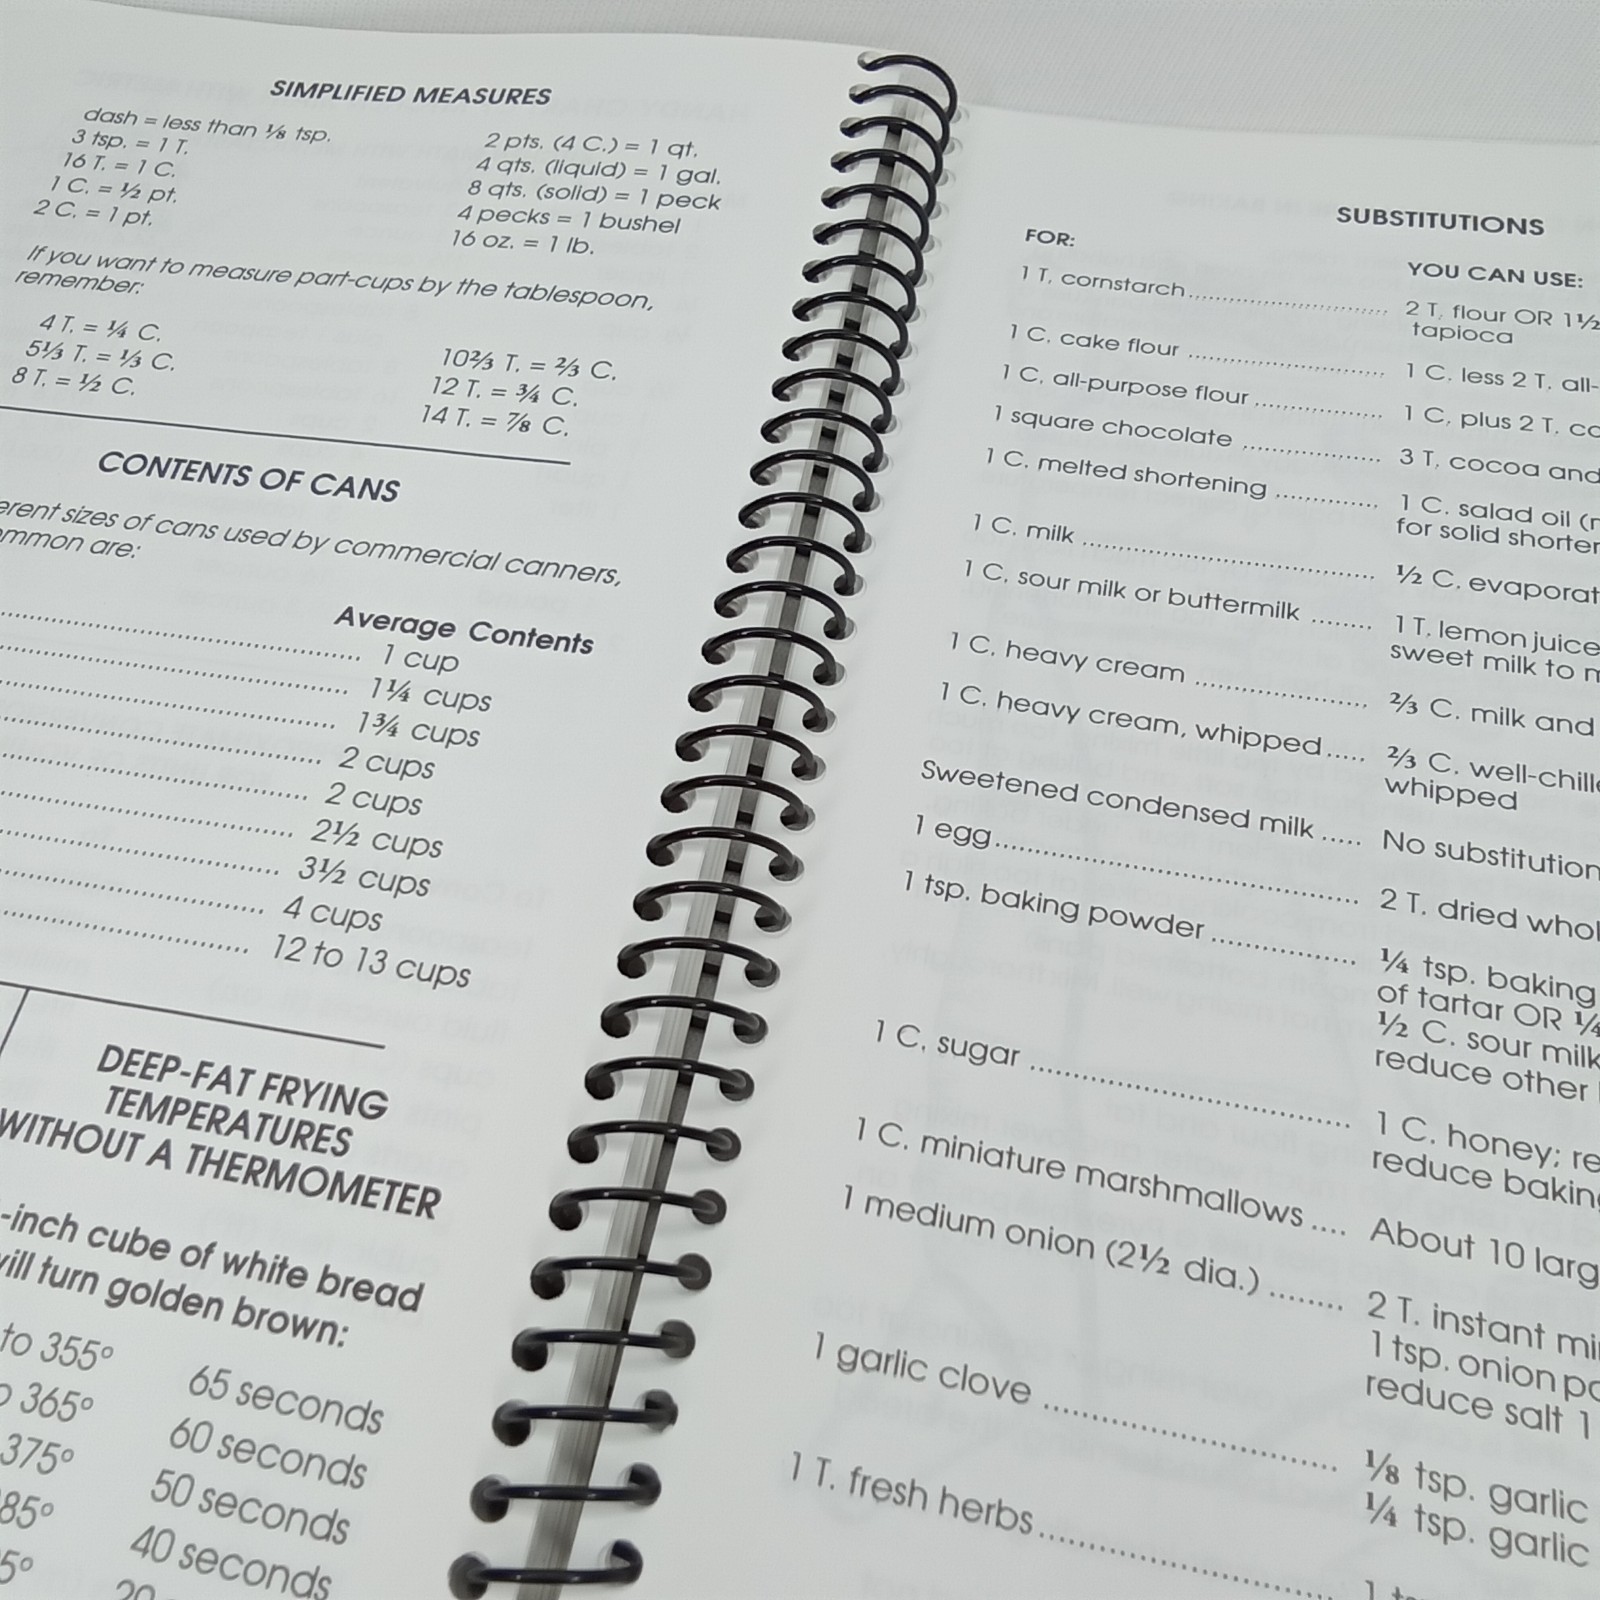 SIMPLIFIED MEASURES
dash = less than ⅛ tsp.
3 tsp. = 1 T.
16 T. = 1 C.
1 C. = ½ pt.
2 C. = 1 pt.
2 pts. (4 C.) = 1 qt.
4 qts. (liquid) = 1 gal.
8 qts. (solid) = 1 peck
4 pecks = 1 bushel
16 oz. = 1 lb.
If you want to measure part-cups by the tablespoon,
remember:
4 T. = ¼ C.
5⅓ T. = ⅓ C.
8 T. = ½ C.
10⅔ T. = ⅔ C.
12 T. = ¾ C.
14 T. = ⅞ C.
CONTENTS OF CANS
sizes of cans used by commercial canners,
are:
Average Contents
1 cup
1¼ cups
1¾ cups
2 cups
2 cups
2½ cups
3½ cups
4 cups
12 to 13 cups
DEEP-FAT FRYING
TEMPERATURES
WITHOUT A THERMOMETER
-inch cube of white bread
will turn golden brown:
to 355° 65 seconds
365° 60 seconds
375° 50 seconds
85° 40 seconds
5° 20
SUBSTITUTIONS
FOR: YOU CAN USE:
1 T. cornstarch .......... 2 T. flour OR 1½
tapioca
1 C. cake flour .......... 1 C. less 2 T. all-
1 C. all-purpose flour .......... 1 C. plus 2 T.
1 square chocolate .......... 3 T. cocoa and
1 C. melted shortening .......... 1 C. salad oil
for solid
1 C. milk .......... ½ C.
1 C. sour milk or buttermilk .......... 1 T. lemon juice
sweet milk to
1 C. heavy cream .......... ⅔ C. milk and
1 C. heavy cream, whipped ..... ⅔ C.
whipped
Sweetened condensed milk ..... No substitution
1 egg .......... 2 T. dried
1 tsp. baking powder .......... ¼ tsp. baking
of tartar OR
½ C. sour milk
reduce other
1 C. sugar .......... 1 C. honey;
reduce
1 C. miniature marshmallows .... About 10
1 medium onion (2½ dia.) ........ 2 T. instant
1 tsp. onion
reduce salt 1
1 garlic clove .......... ⅛ tsp. garlic
¼ tsp. garlic
1 T. fresh herbs .......... 1